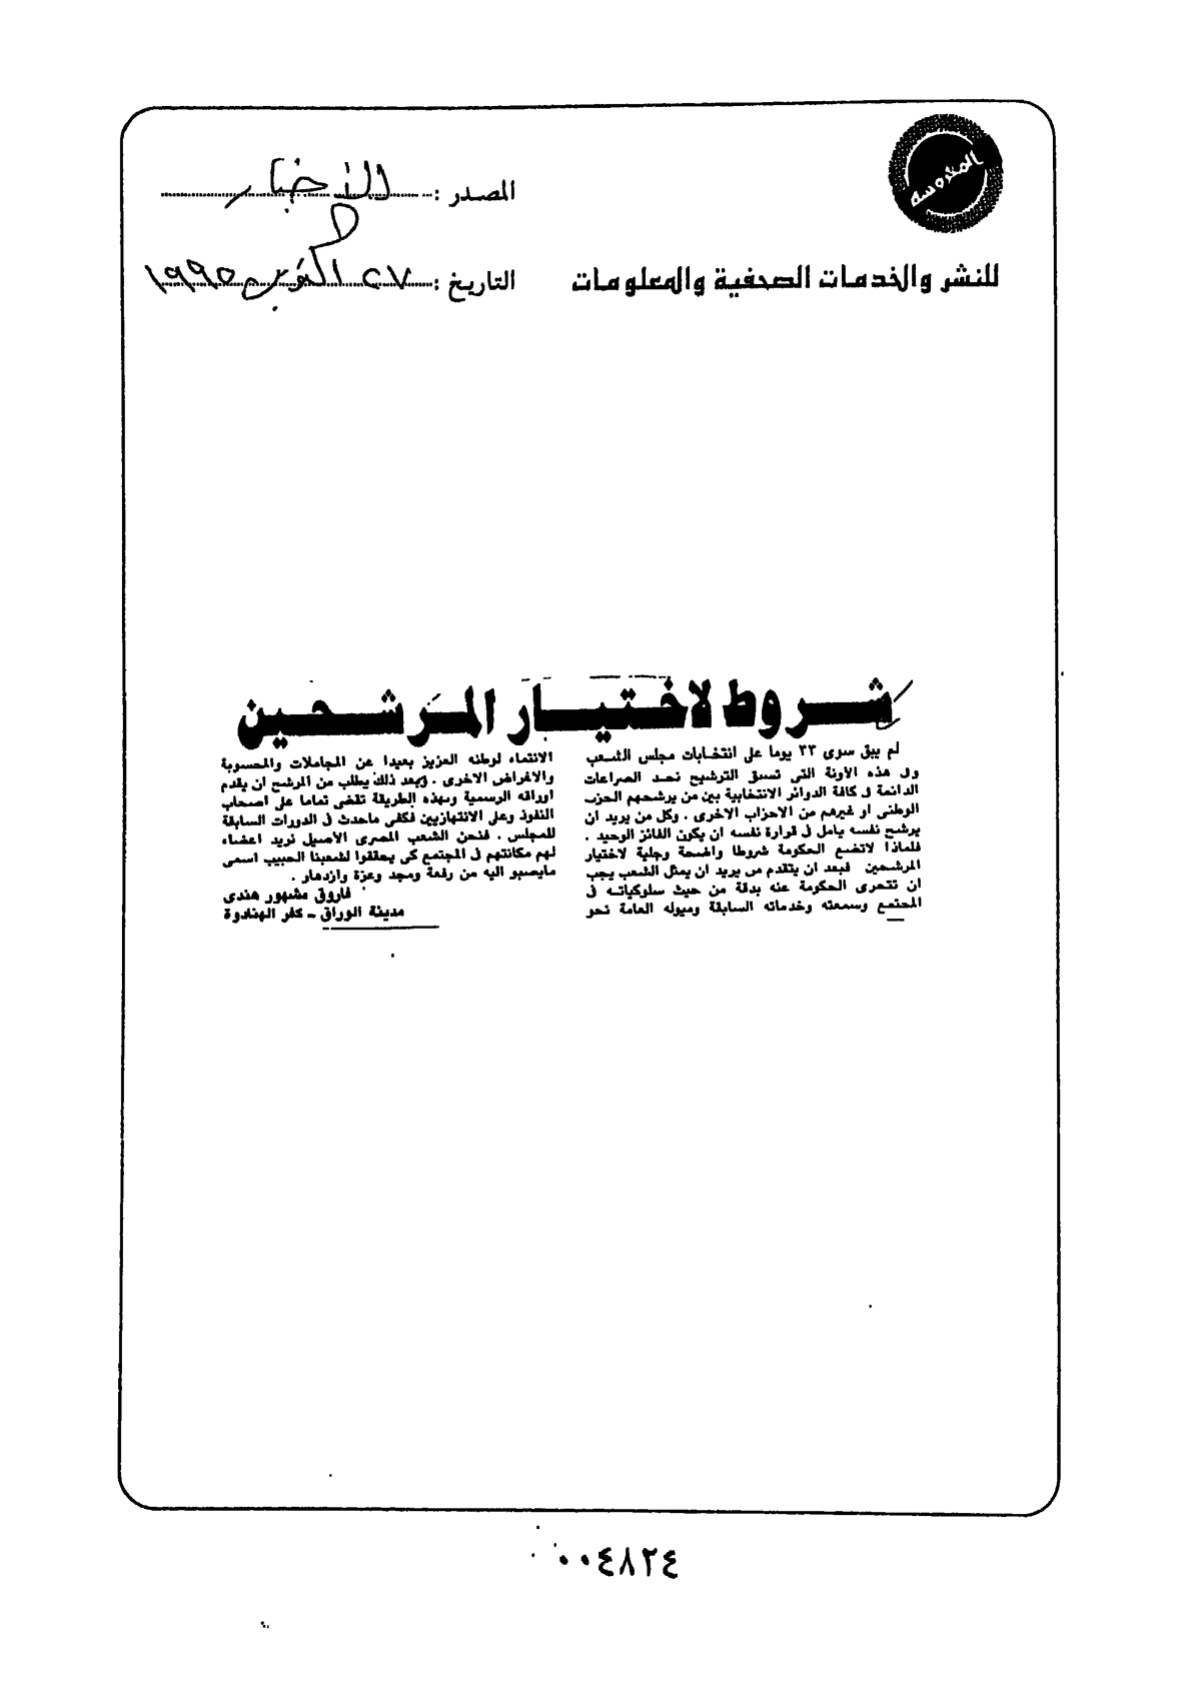 المحروسة
للنشر والخدمات الصحفية والمعلومات
المصدر : الأخبار
التاريخ : ٢٧ اكتوبر ١٩٩٥
شروط لاختيار المرشحين
لم يبق سوى ٣٣ يوما على انتخابات مجلس الشعب
وفى هذه الاونة التى تسبق الترشيح نجد الصراعات
الدائمة فى كافة الدوائر الانتخابية بين من يرشحهم الحزب
الوطنى او غيرهم من الاحزاب الاخرى . وكل من يريد ان
يرشح نفسه يامل فى قرارة نفسه ان يكون الفائز الوحيد .
فلماذا لاتضع الحكومة شروطا واضحة وجلية لاختيار
المرشحين فبعد ان يتقدم من يريد ان يمثل الشعب يجب
ان تتحرى الحكومة عنه بدقة من حيث سلوكياته فى
المجتمع وسمعته وخدماته السابقة وميوله العامة نحو
الانتماء لوطنه العزيز بعيدا عن المجاملات والمحسوبة
والاغراض الاخرى . وبعد ذلك يطلب من المرشح ان يقدم
اوراقه الرسمية وبهذه الطريقة تقضى تماما على اصحاب
النفوذ وعلى الانتهازيين فكفى ماحدث فى الدورات السابقة
للمجلس . فنحن الشعب المصرى الاصيل نريد اعضاء
لهم مكانتهم فى المجتمع كى يحققوا لشعبنا الحبيب اسمى
مايصبو اليه من رفعة ومجد وعزة وازدهار .
فاروق مشهور هندى
مدينة الوراق - كفر الهنادوة
٠٠٤٨٢٤